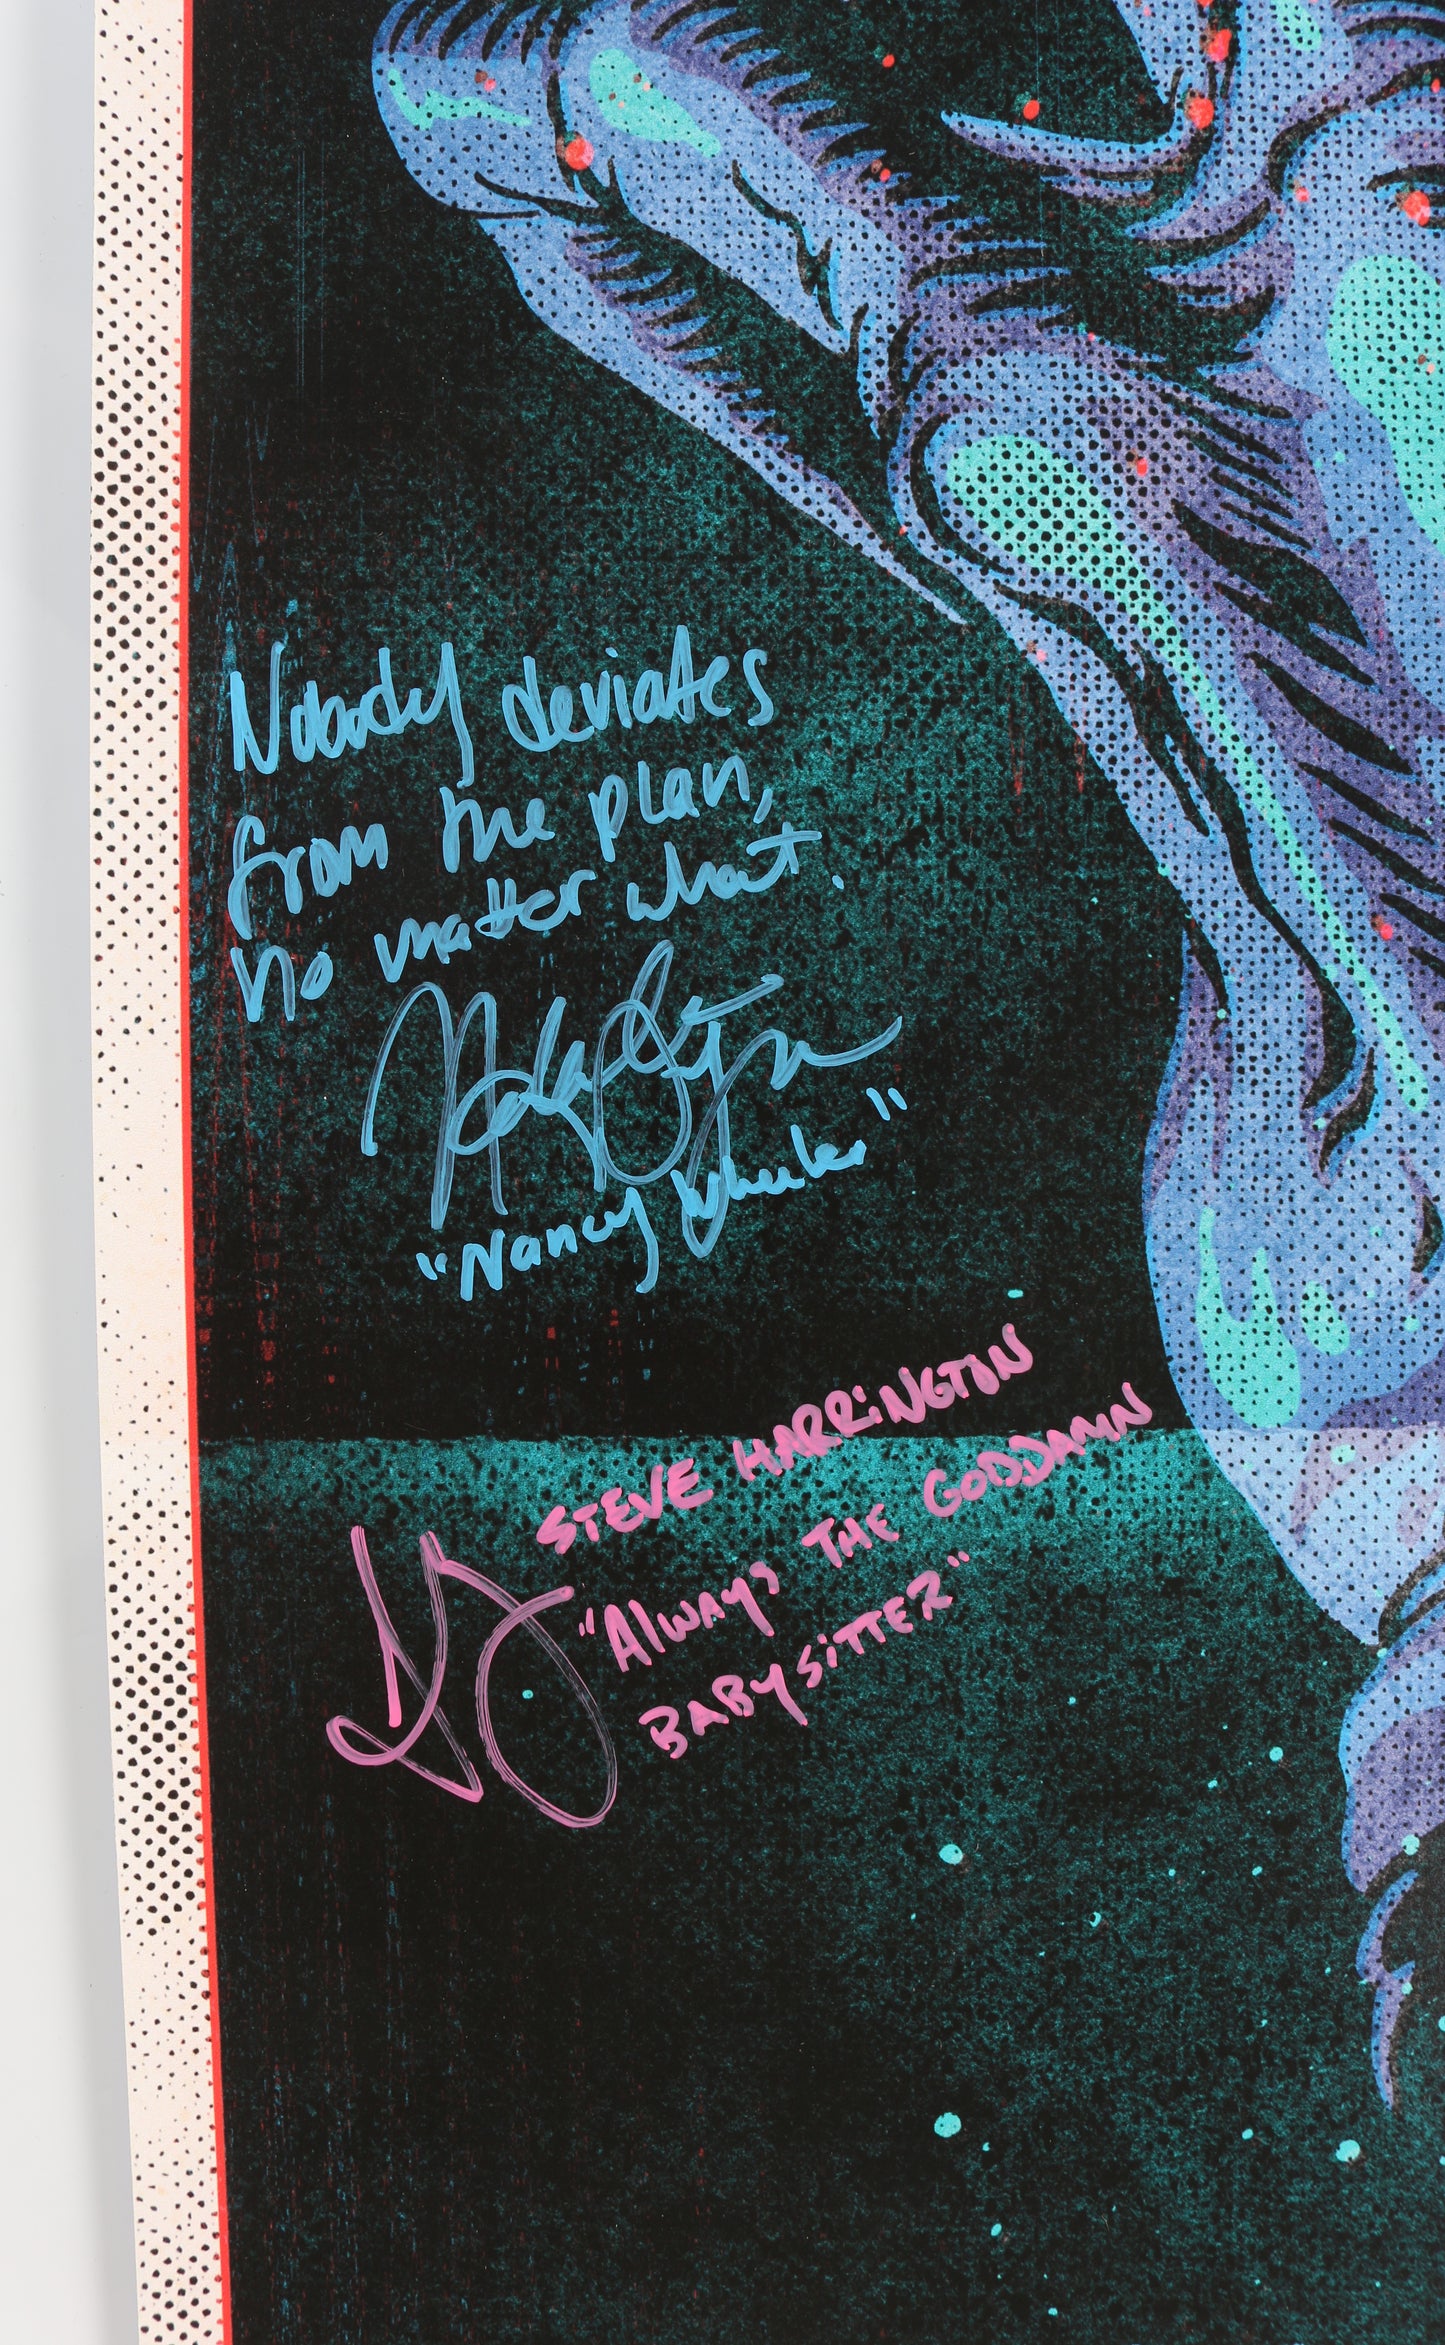 Nobody deviates
from the plan,
no matter what.
"Nancy Wheeler"
STEVE HARRINGTON
"Always THE GODDAMN
BABYSITTER"